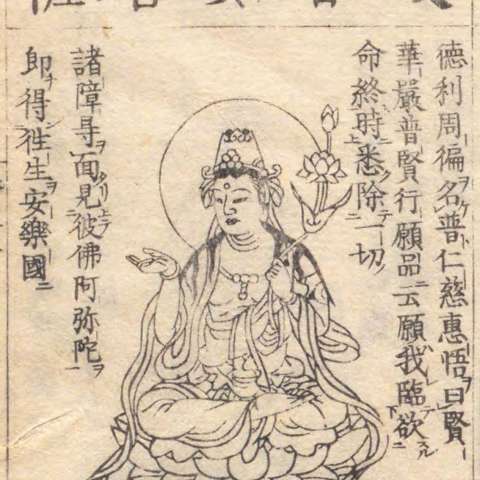 德利周徧名普仁慈惠悟曰賢
華嚴普賢行願品云願我臨欲
命終時悉除一切
諸障㝵面見彼佛阿弥陀
即得徃生安樂國